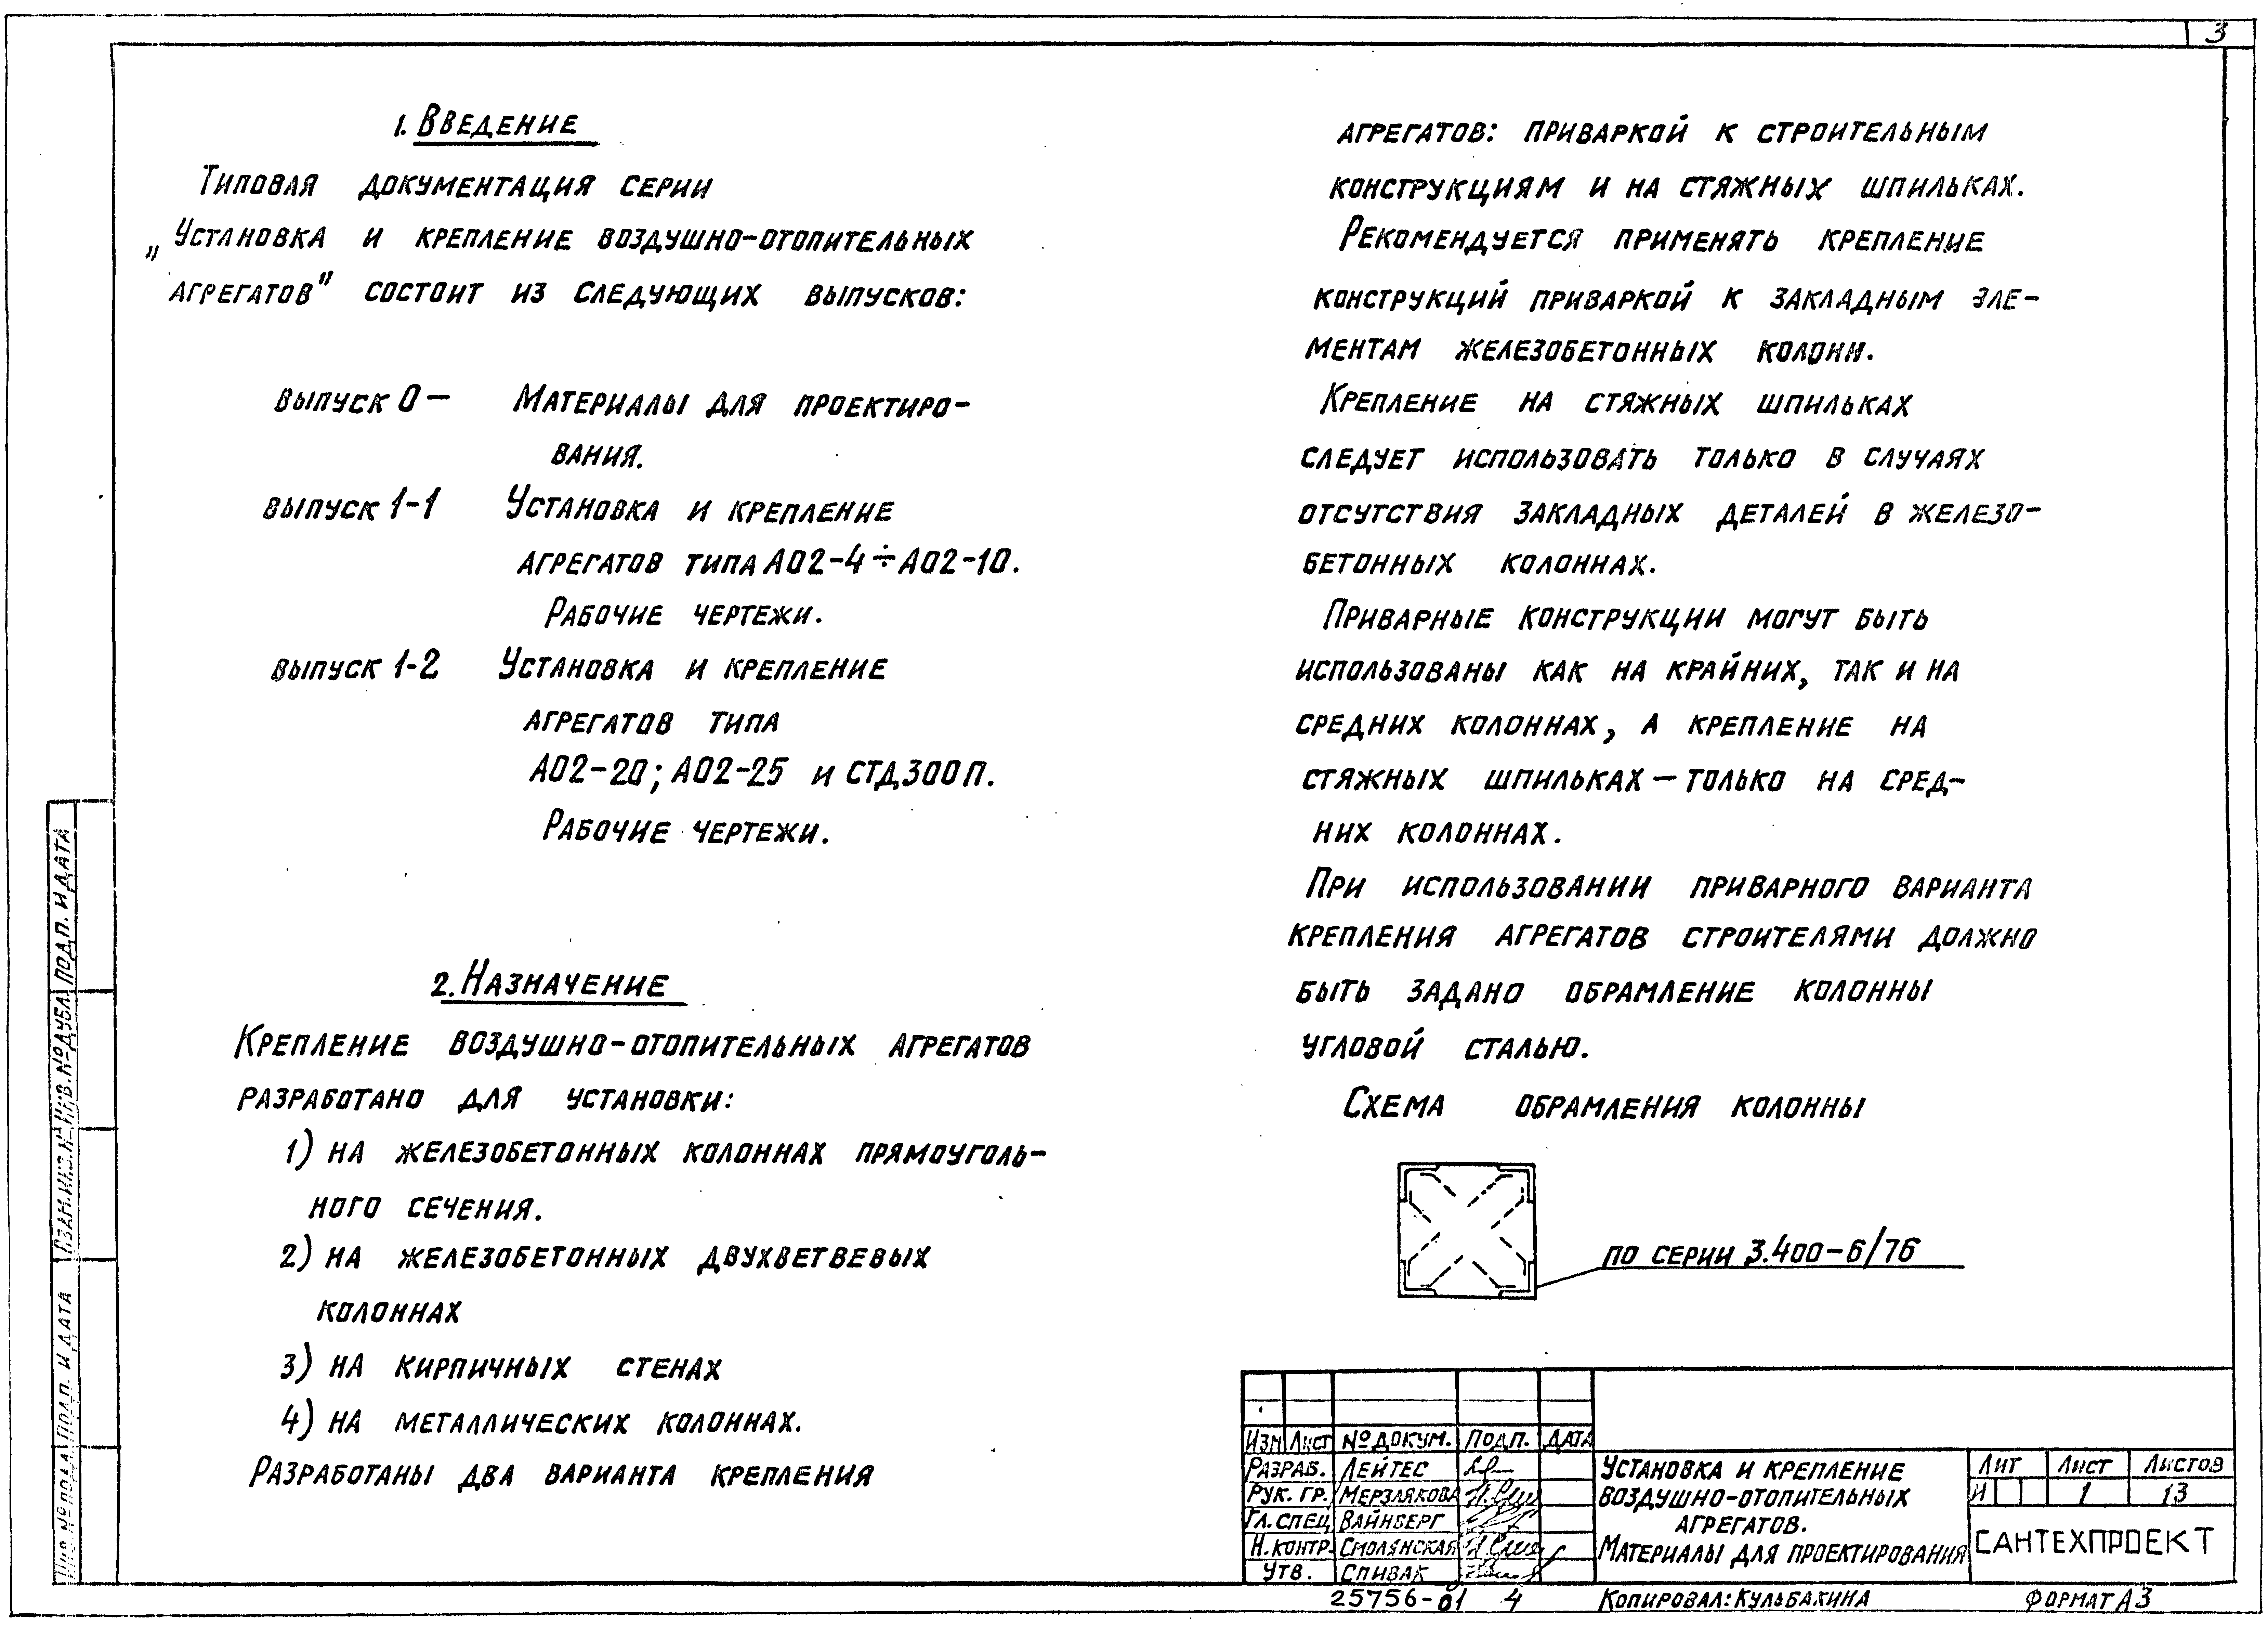 3
1. Введение
Типовая документация серии
„Установка и крепление воздушно-отопительных
агрегатов" состоит из следующих выпусков:
выпуск 0 — Материалы для проектиро-
вания.
выпуск 1-1 Установка и крепление
агрегатов типа А02-4÷А02-10.
Рабочие чертежи.
выпуск 1-2 Установка и крепление
агрегатов типа
А02-20; А02-25 и СТД300П.
Рабочие чертежи.
2. Назначение
Крепление воздушно-отопительных агрегатов
разработано для установки:
1) на железобетонных колоннах прямоуголь-
ного сечения.
2) на железобетонных двухветвевых
колоннах
3) на кирпичных стенах
4) на металлических колоннах.
Разработаны два варианта крепления
агрегатов: приваркой к строительным
конструкциям и на стяжных шпильках.
Рекомендуется применять крепление
конструкций приваркой к закладным эле-
ментам железобетонных колонн.
Крепление на стяжных шпильках
следует использовать только в случаях
отсутствия закладных деталей в железо-
бетонных колоннах.
Приварные конструкции могут быть
использованы как на крайних, так и на
средних колоннах, а крепление на
стяжных шпильках — только на сред-
них колоннах.
При использовании приварного варианта
крепления агрегатов строителями должно
быть задано обрамление колонны
угловой сталью.
Схема обрамления колонны
по серии 3.400-6/76
Изм Лист № докум. Подп. Дата
Разраб. Лейтес
Рук. гр. Мерзлякова
Гл. спец Вайнберг
Н. контр. Смолянская
Утв. Спивак
Установка и крепление
воздушно-отопительных
агрегатов.
Материалы для проектирования
Лит Лист Листов
И 1 13
САНТЕХПРОЕКТ
25756-01 4
Копировал: Кульбакина
Формат А3
Подп. и дата
Инв. № дубл.
Взам. инв. №
Подп. и дата
Инв. № подл.